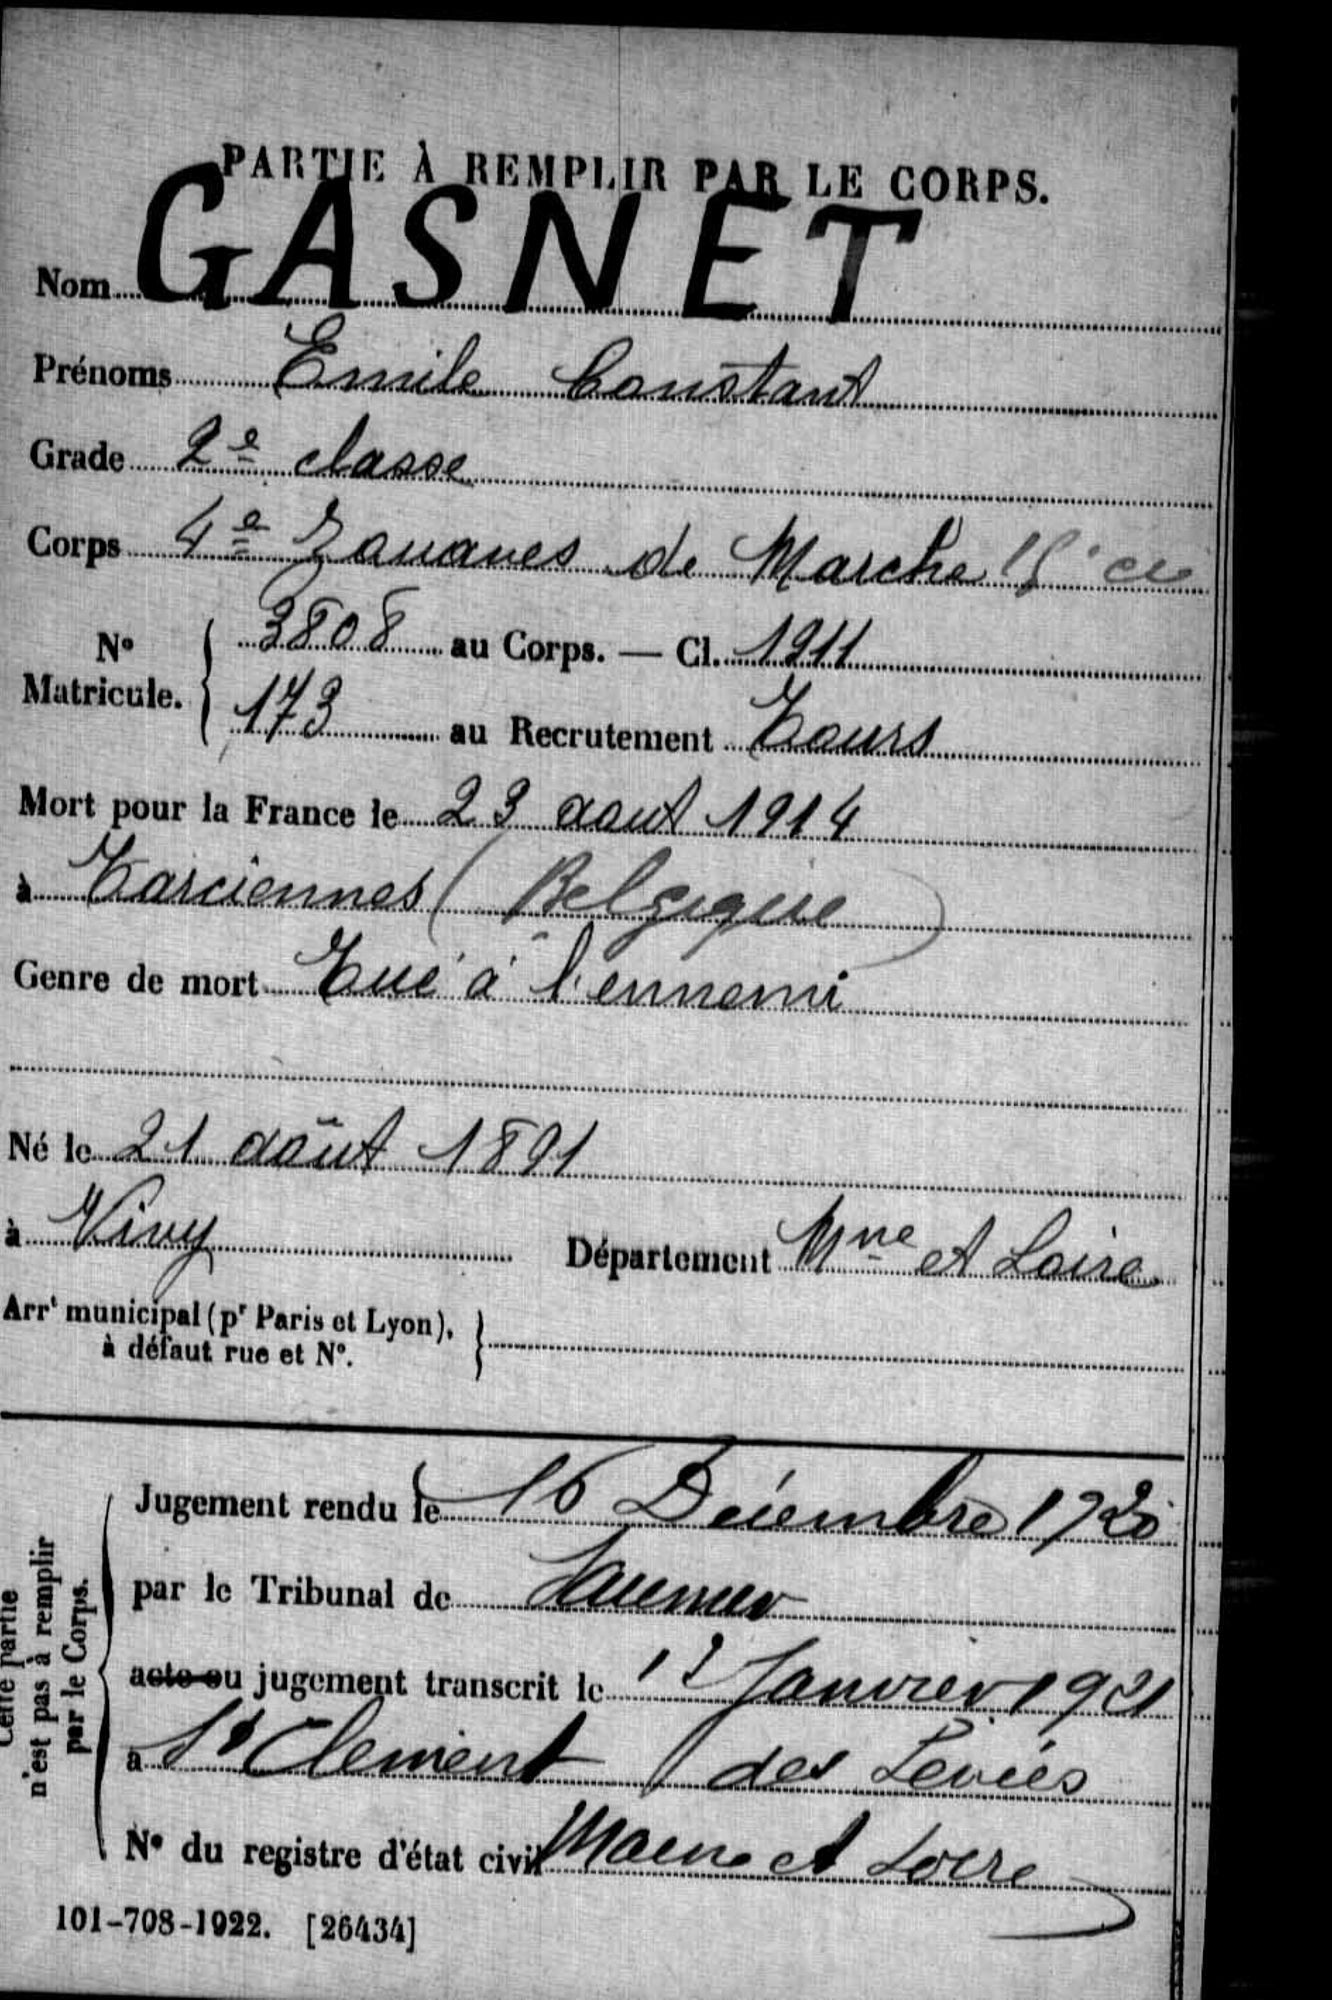 PARTIE À REMPLIR PAR LE CORPS.
Nom GASNET
Prénoms Emile Constant
Grade 2e classe
Corps 4e Zouaves de Marche 15e cie
N° Matricule. { 3808 au Corps. — Cl. 1911
173 au Recrutement Tours
Mort pour la France le 23 aout 1914
à Tarciennes (Belgique)
Genre de mort Tué à l'ennemi
Né le 21 août 1891
à Vivy Département Mne et Loire
Arrt municipal (pr Paris et Lyon), à défaut rue et N°. }
Cette partie n'est pas à remplir par le Corps.
Jugement rendu le 16 Décembre 1920
par le Tribunal de Saumur
acte ou jugement transcrit le Janvier 1921
à St Clement des Levées
N° du registre d'état civil Maine et Loire
101-708-1922. [26434]